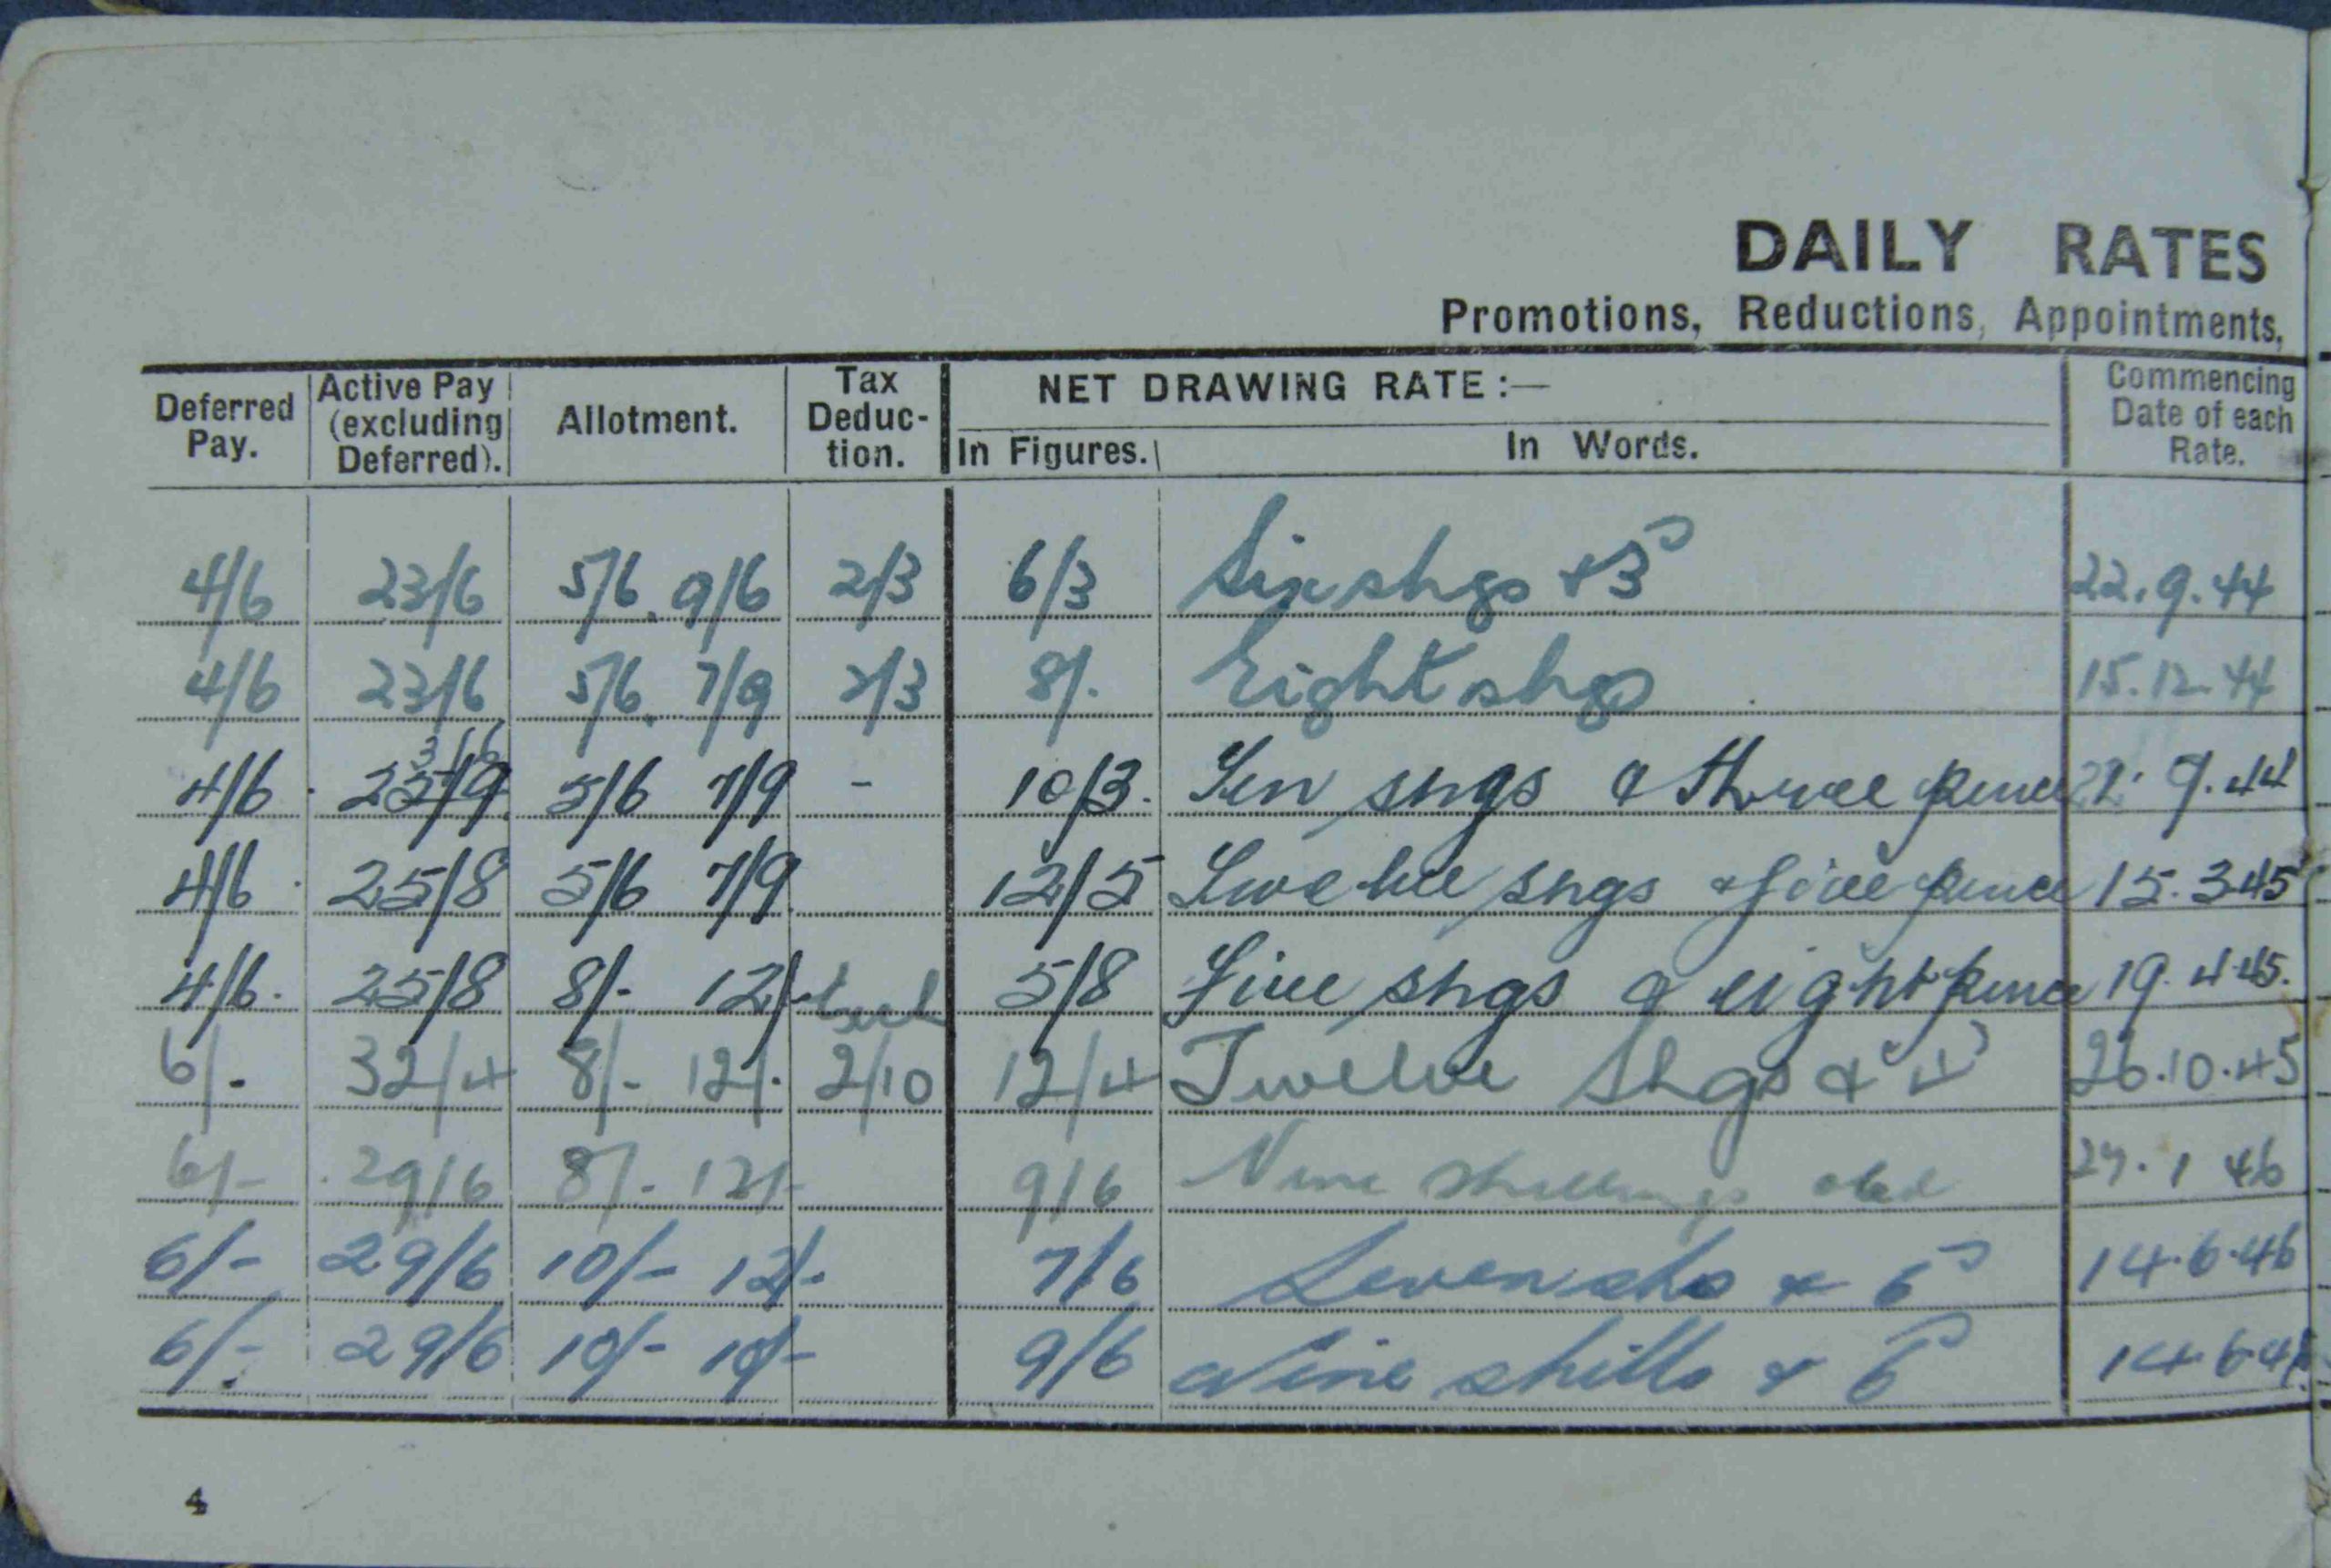 DAILY RATES
Promotions, Reductions, Appointments,
Deferred Pay. Active Pay (excluding Deferred). Allotment. Tax Deduc-tion. NET DRAWING RATE :— In Figures. In Words. Commencing Date of each Rate.
4/6 23/6 5/6. 9/6 2/3 6/3 Six shgs + 3 22.9.44
4/6 23/6 5/6. 7/9 2/3 8/. Eight shgs 15.12.44
4/6 23/6 5/6 7/9 - 10/3. Ten shgs & three pence 22. 9.44
4/6 25/8 5/6 7/9 12/5 Twelve shgs & five pence 15.3.45
4/6. 25/8 8/- 12/- 5/8 Five shgs & eight pence 19.4.45.
6/- 32/4 8/- 12/. 2/10 12/4 Twelve Shgs & 4 26.10.45
6/- 29/6 8/- 12/- 9/6 Nine shillings 1 46
6/- 29/6 10/- 12/- 7/6 Seven shs & 6 14.6.46
6/- 29/6 10/- 10/- 9/6 Nine shills & 6 14.6.4
4